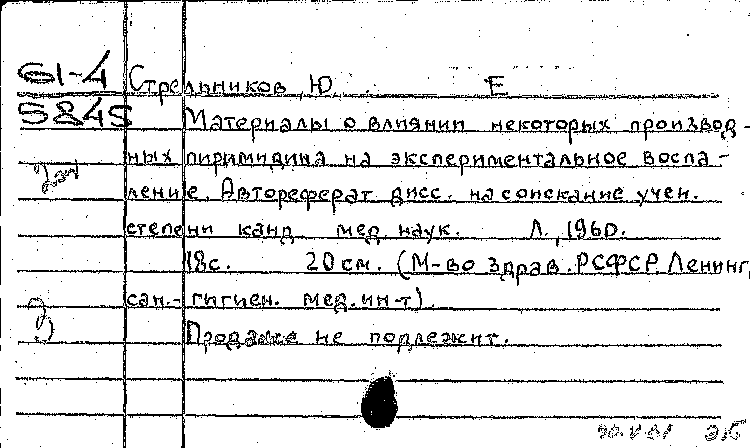 61-4 Стрельников, Ю. Е
5845 Материалы о влиянии некоторых производ-
ных пиримидина на экспериментальное воспа-
ление. Автореферат дисс. на соискание учен.
степени канд мед. наук. Л., 1960.
18с. 20 см. (М-во здрав. РСФСР. Ленинг.
сан.-гигиен. мед. ин-т)
Продаже не подлежит.